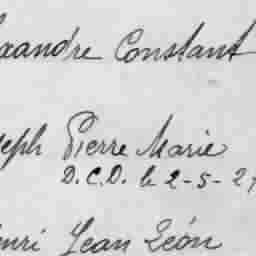 exandre Constant
seph Pierre Marie
D.C.D. le 2-5-21
enri Jean Léon